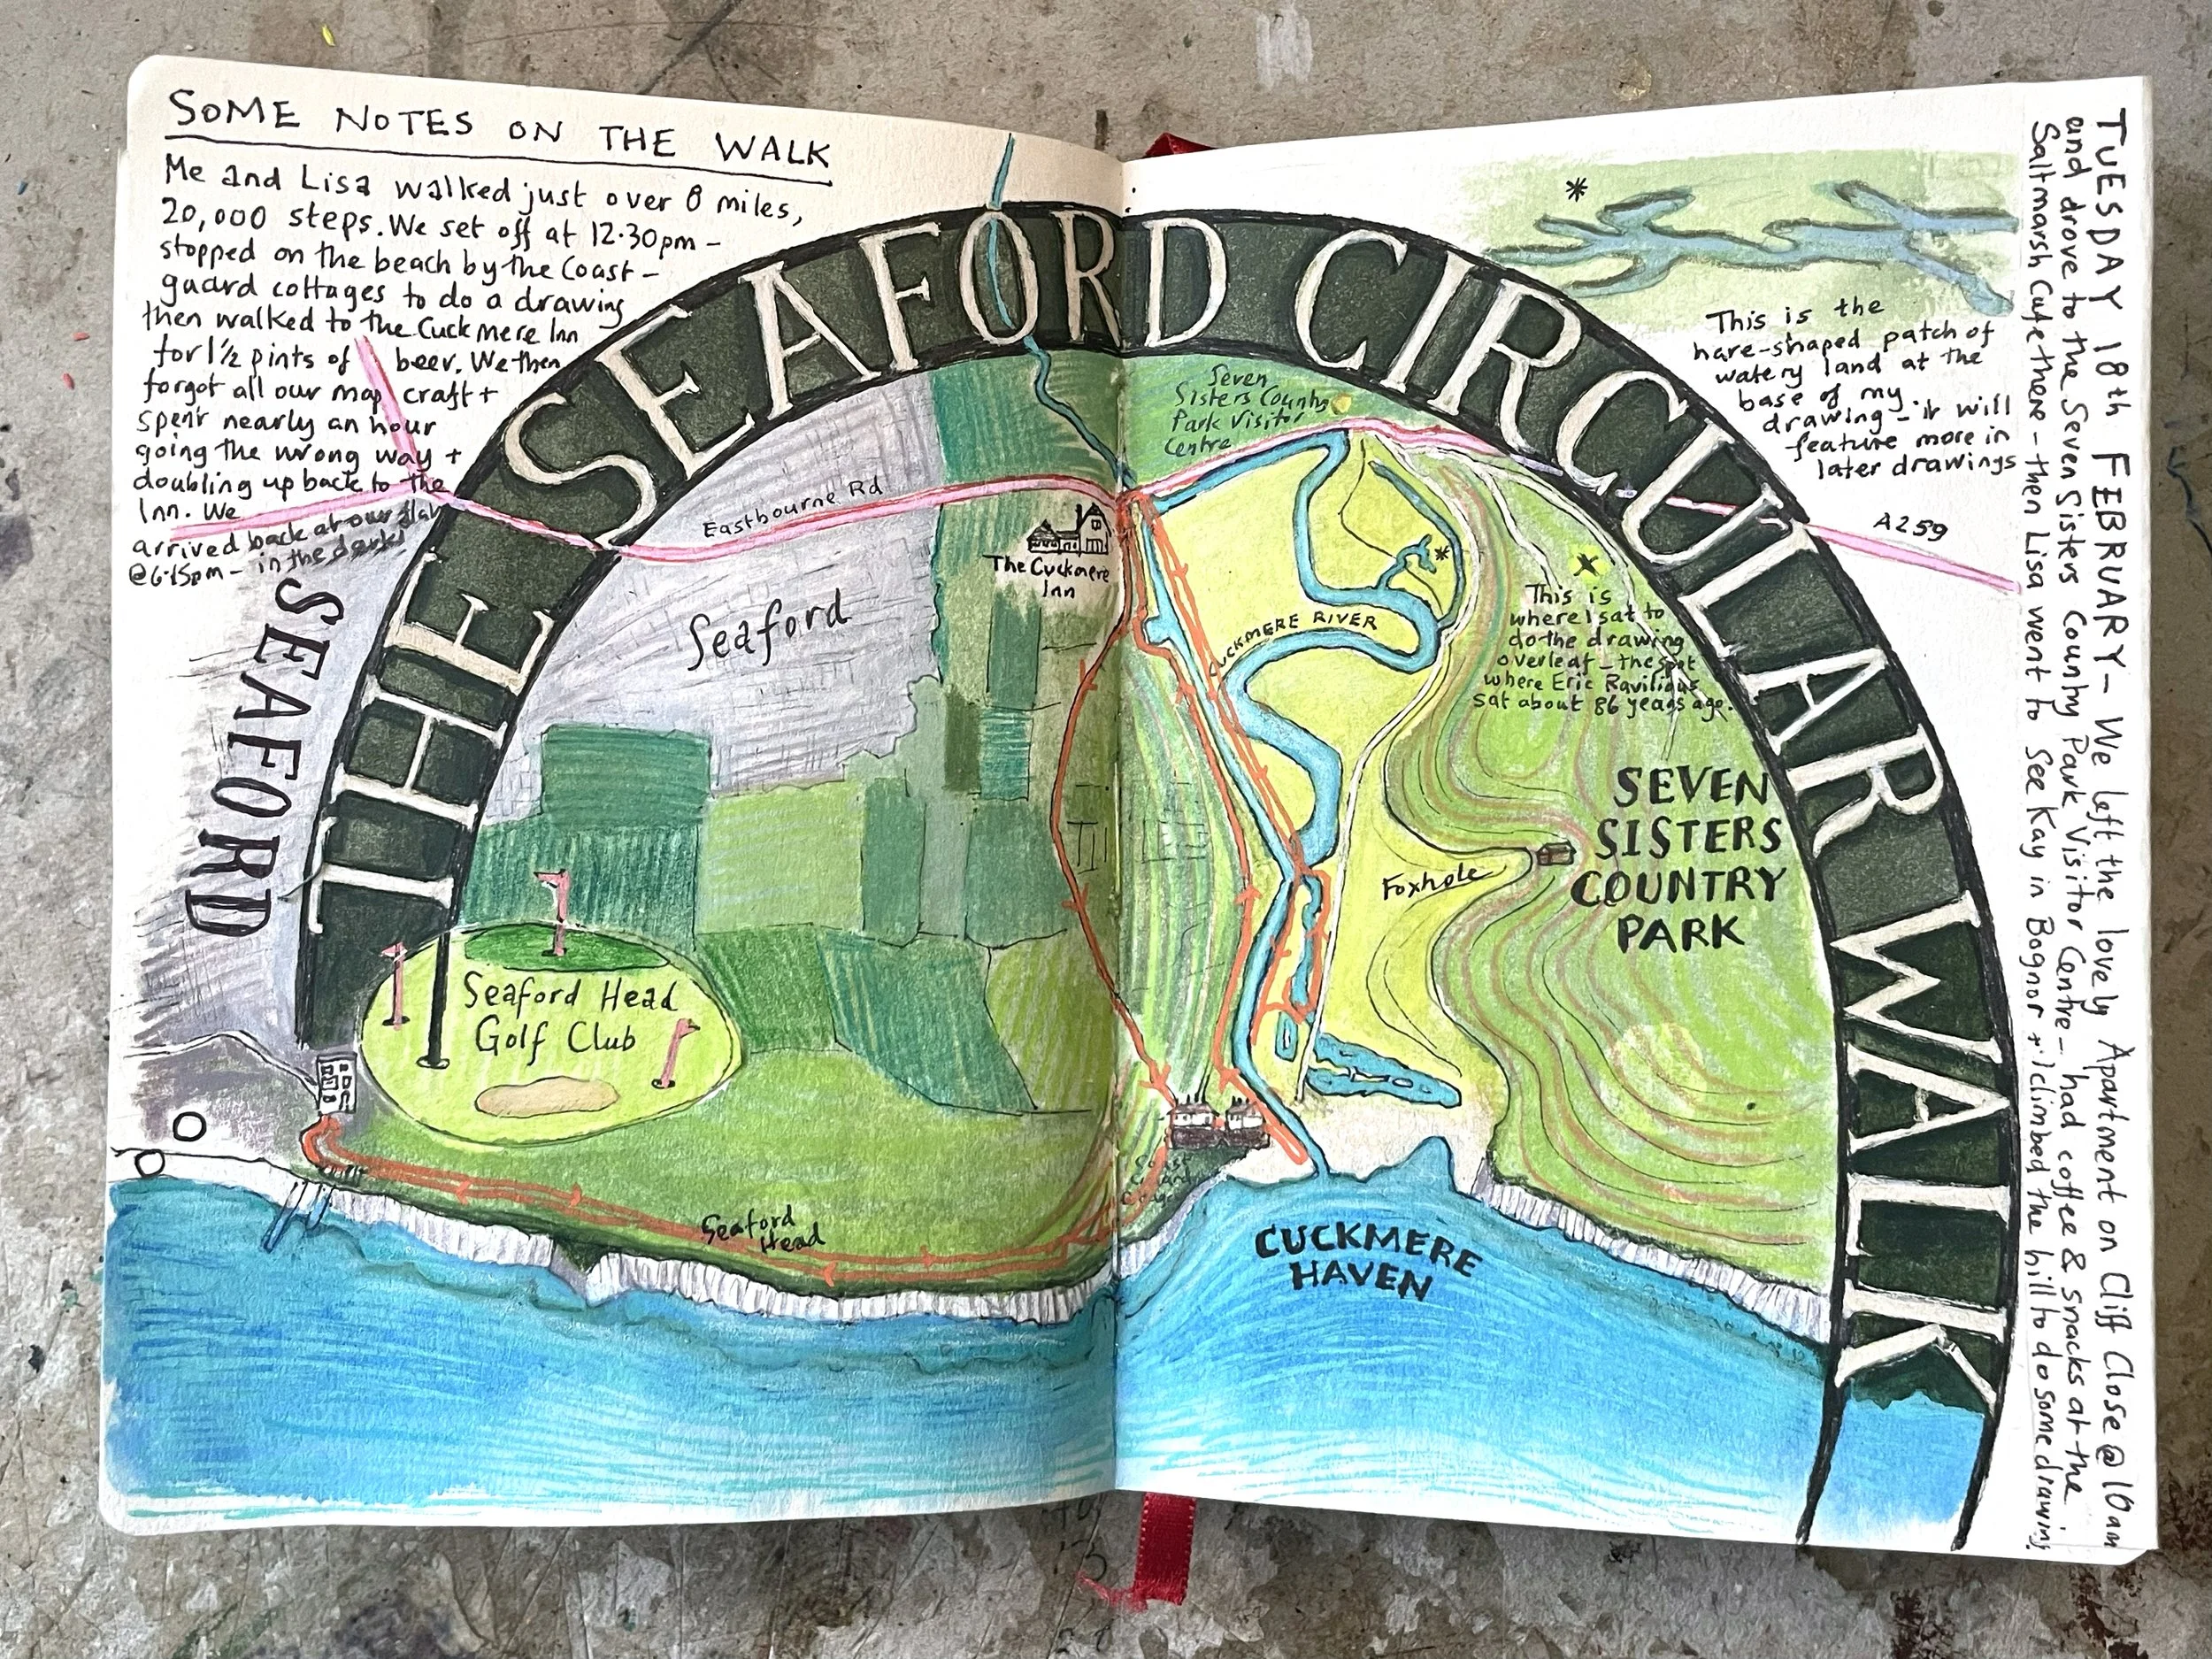 SOME NOTES ON THE WALK
Me and Lisa walked just over 8 miles,
20,000 steps. We set off at 12.30pm -
stopped on the beach by the Coast-
guard cottages to do a drawing
then walked to the Cuckmere Inn
for 1½ pints of beer. We then
forgot all our map craft +
spent nearly an hour
going the wrong way +
doubling up back to the
Inn. We
arrived back at our flat
@6.15pm - in the dark!
THE SEAFORD CIRCULAR WALK
SEAFORD
Seaford
Eastbourne Rd
The Cuckmere
Inn
Seaford Head
Golf Club
Seaford
Head
Seven
Sisters Country
Park Visitor
Centre
CUCKMERE RIVER
Foxhole
Coast
Guard
CUCKMERE
HAVEN
*
This is the
hare-shaped patch of
watery land at the
base of my
drawing - it will
feature more in
later drawings
A259
*
x
This is
where I sat to
do the drawing
overleaf - the spot
where Eric Ravilious
sat about 86 years ago.
SEVEN
SISTERS
COUNTRY
PARK
TUESDAY 18th FEBRUARY - We left the lovely Apartment on Cliff Close @ 10am
and drove to the Seven Sisters Country Park Visitor Centre - had coffee & snacks at the
Saltmarsh Cafe there - then Lisa went to see Kay in Bognor + I climbed the hill to do some drawing